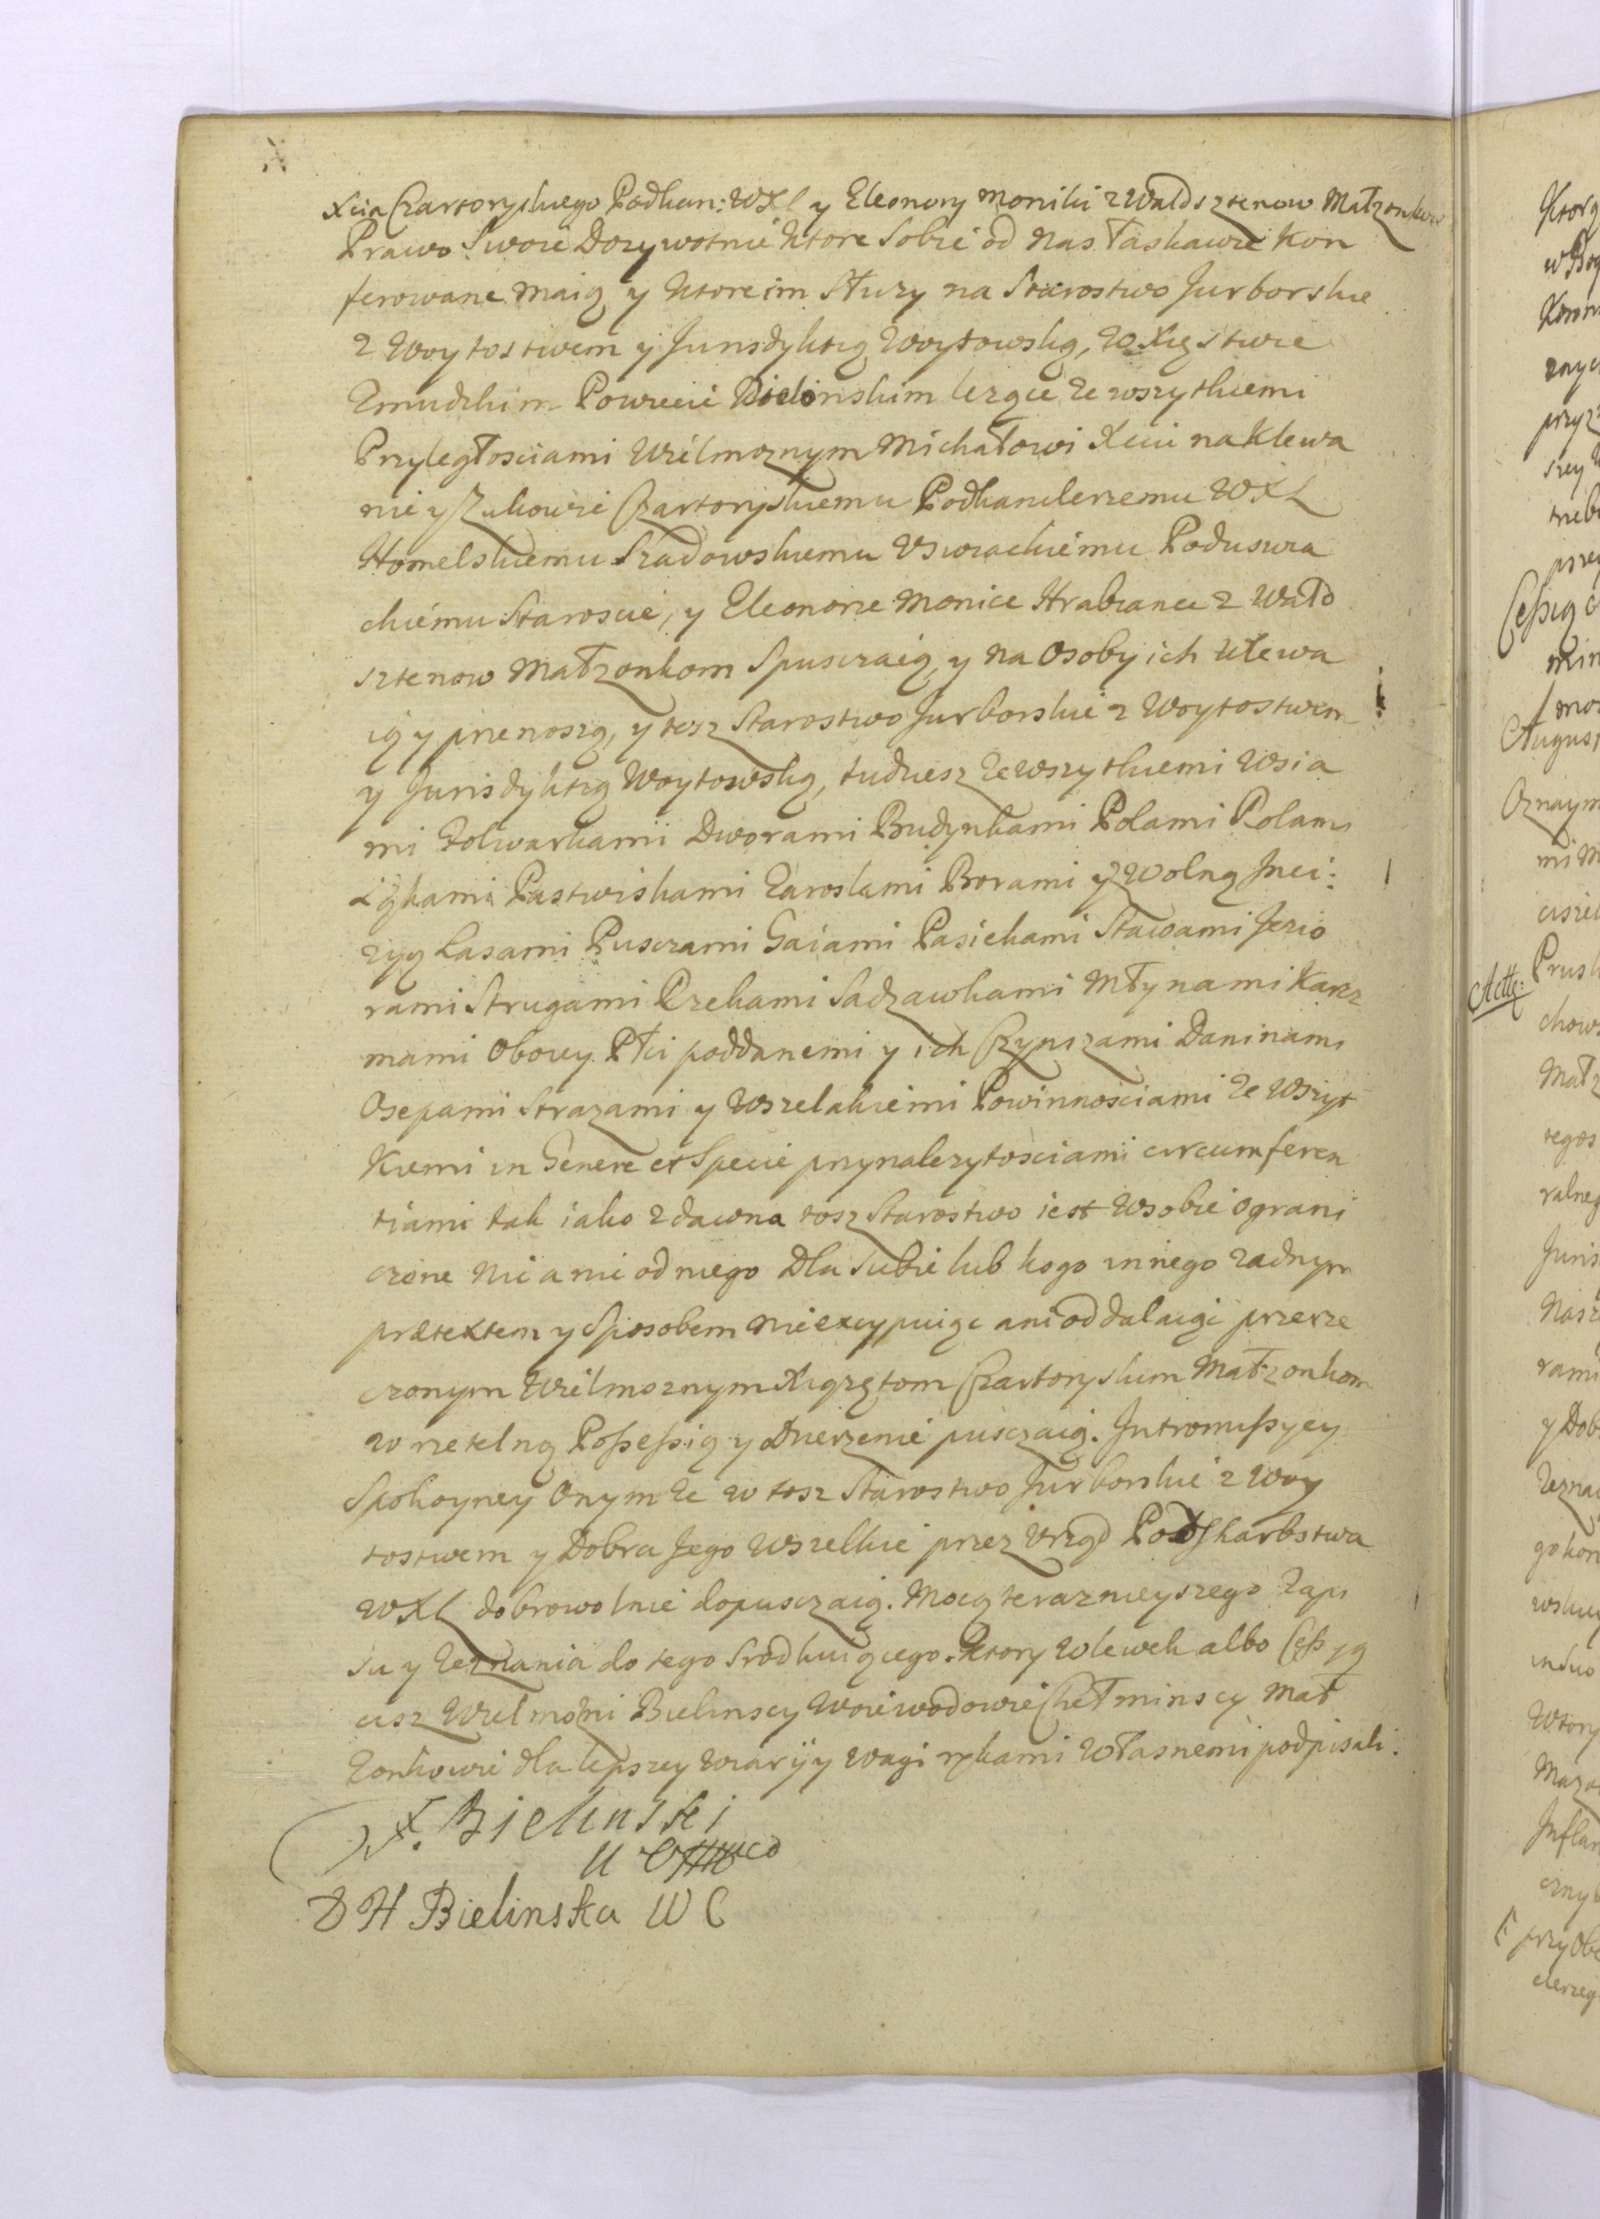 Xcia Czartoryskiego Podkan: WXL y Eleonory Moniki z Waldsztenow Małzonkow
Prawo Swoie Dozywotnie ktore Sobie od nas łaskawie Kon
ferowane maią y ktore im Słuzy na Starostwo Jurborskie
z Woytostwem y Jurisdyktią Woytowską, w Xięstwie
Zmudzkim Powiecie lezące ze wszytkiemi
Przyległosciami Wielmoznym Michałowi Xciu na Klewa
niu y Zukowie Czartoryskiemu Podkanclerzemu WXL
Homelskiemu Szadowskiemu Uswiackiemu Poduswia
ckiemu Staroscie, y Eleonorze Monice Hrabiance z Wald
sztenow Małzonkom Spusczaią, y na Osoby ich wlewa
ią y przenoszą, y tesz Starostwo Jurborskie z Woytostwem
y Jurisdyktią Woytowską, tudziesz ze wszytkiemi Wsia
mi Folwarkami Dworami Budynkami Polami Rolami
Łąkami Pastwiskami Zaroslami Borami y Wolną Inci:
zyą Lasami Pusczami Gaiami Pasiekami Stawami Jezio
rami Strugami Rzekami Sadzawkami Młynami Karcz
mami Oboey Płci poddanemi y ich Czynszami Daninami
Osepami Strazami y Wszelakiemi Powinnosciami ze Wszyt
kiemi in Genere et Specie przynalezytosciami circumferen
tiami tak iako z dawna tosz Starostwo iest w sobie ograni
czone nic a nic od niego dla Siebie lub kogo innego zadnym
prætextem y Sposobem nie excypuiąc ani oddalaiąc przerze
czonym Wielmoznym Xiązętom Czartoryskim Małzonkom
w rzetelną Possessią y Dzierzenie pusczaią. Intromissyey
Spokoyney Onymze w tosz Starostwo Jurborskie z Woy
tostwem y Dobra Jego wszelkie przez Urząd Podskarbstwa
WXL dobrowolnie dopusczaią. Mocą teraznieyszego Zapi
su y Zeznania do tego Srodkuiącego. Ktory Wlewek albo Cessyą
cisz Wielmozni Bielinscy Woiewodowie Chełminscy Mał
zonkowie dla lepszey wiary y wagi rękami własnemi podpisali.
K. Bielinski
D H Bielinska W C